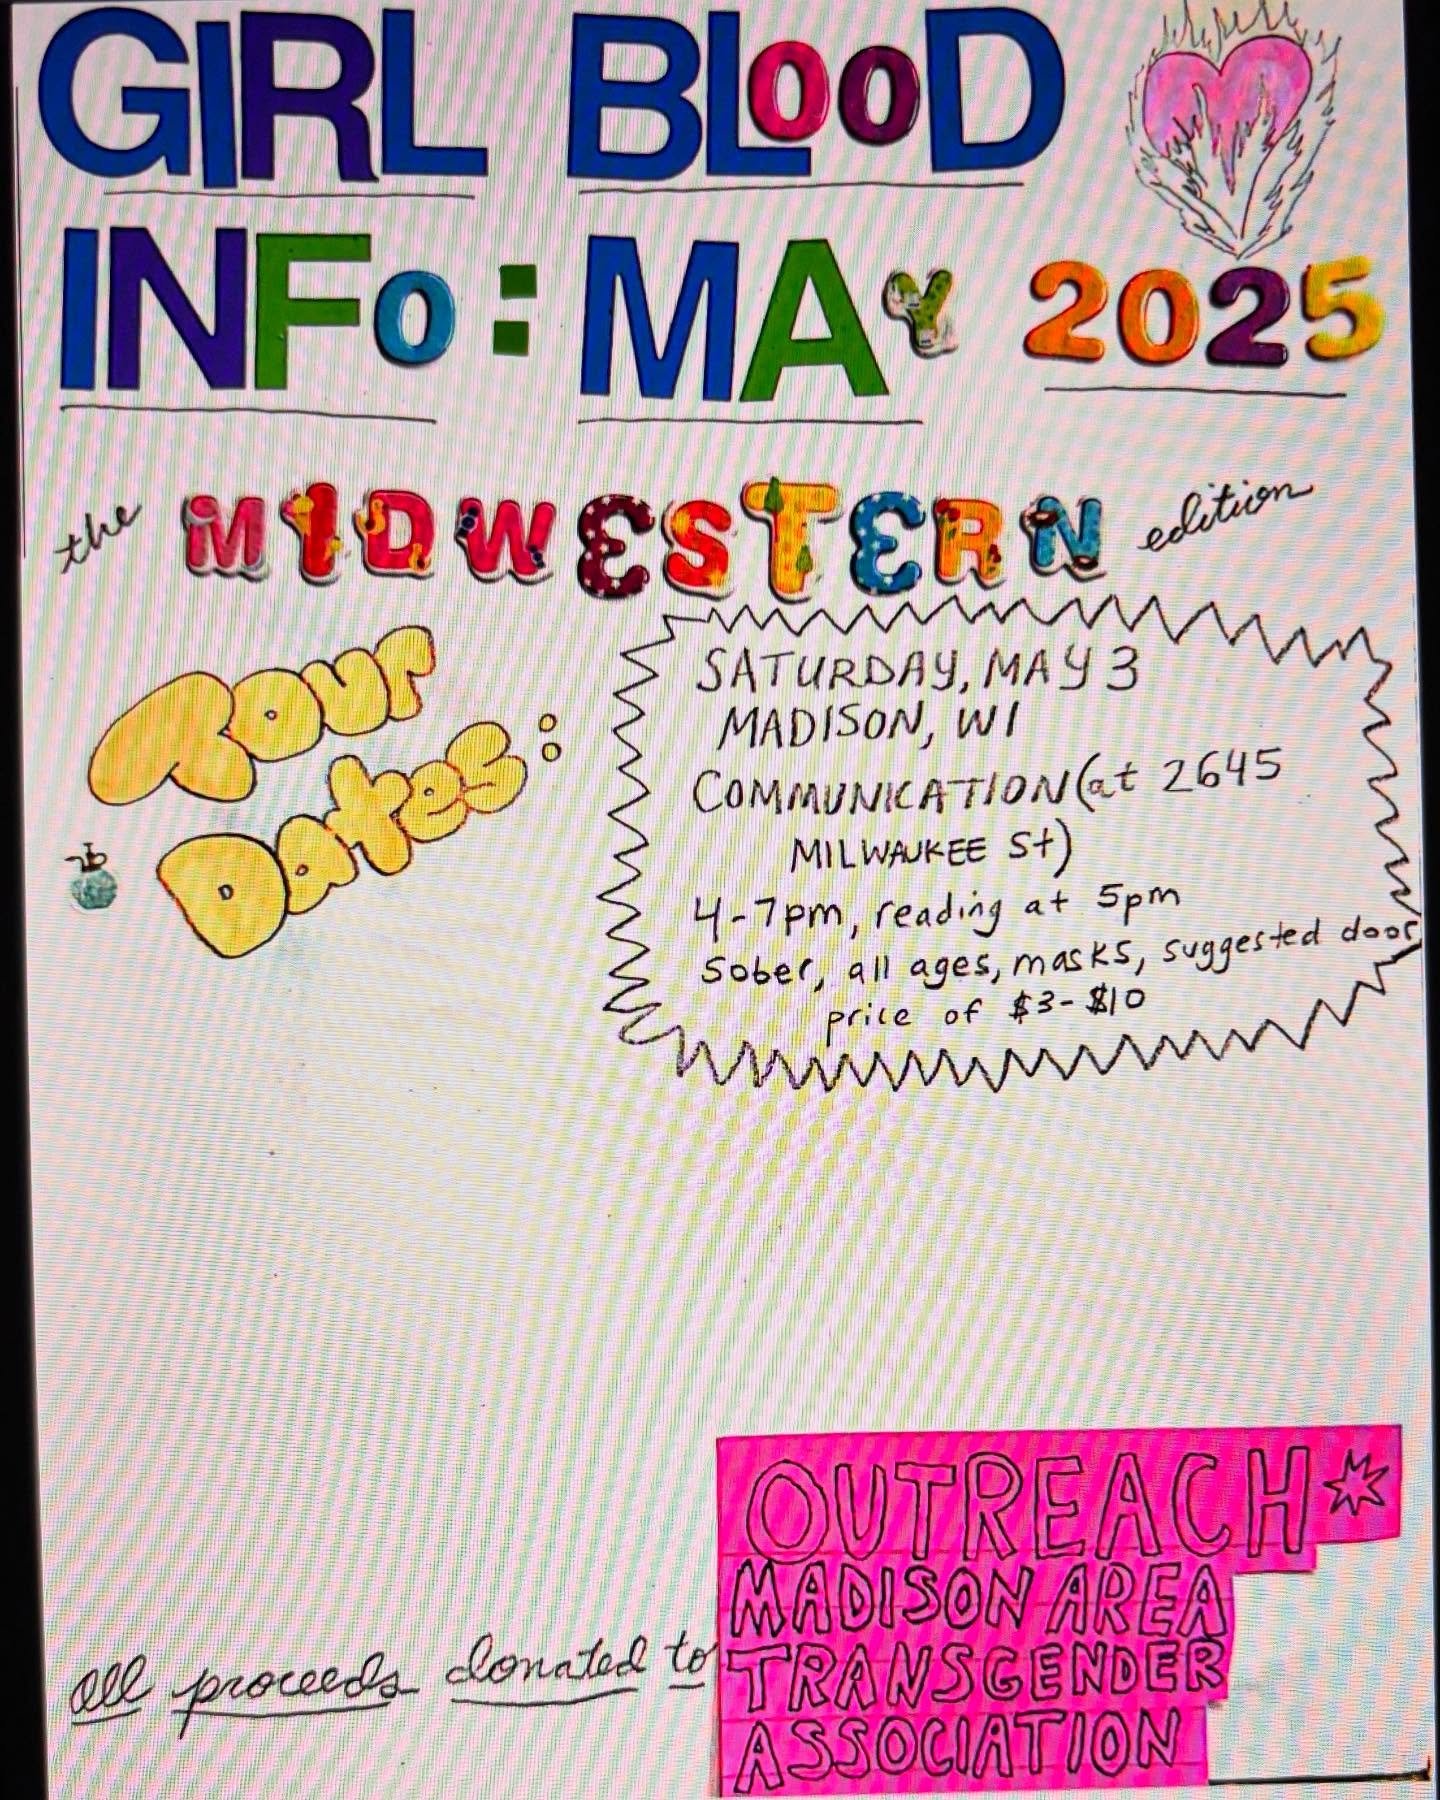 GIRL BLooD
INFo: MAY 2025
the MIDWESTERN edition
Tour
Dates:
SATURDAY, MAY 3
MADISON, WI
COMMUNICATION (at 2645
MILWAUKEE St)
4-7pm, reading at 5pm
Sober, all ages, masks, suggested door
price of $3-$10
all proceeds donated to
OUTREACH
MADISON AREA
TRANSGENDER
ASSOCIATION